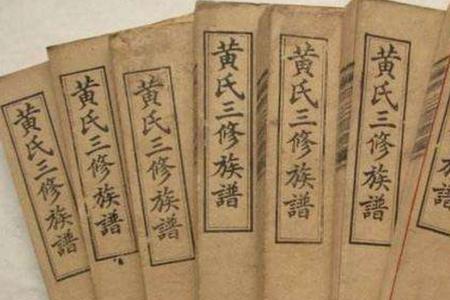 黄氏三修族譜
黄氏三修族譜
黄氏三修族譜
黄氏三修族譜
黄氏三修族譜
黄氏三修族譜
族譜